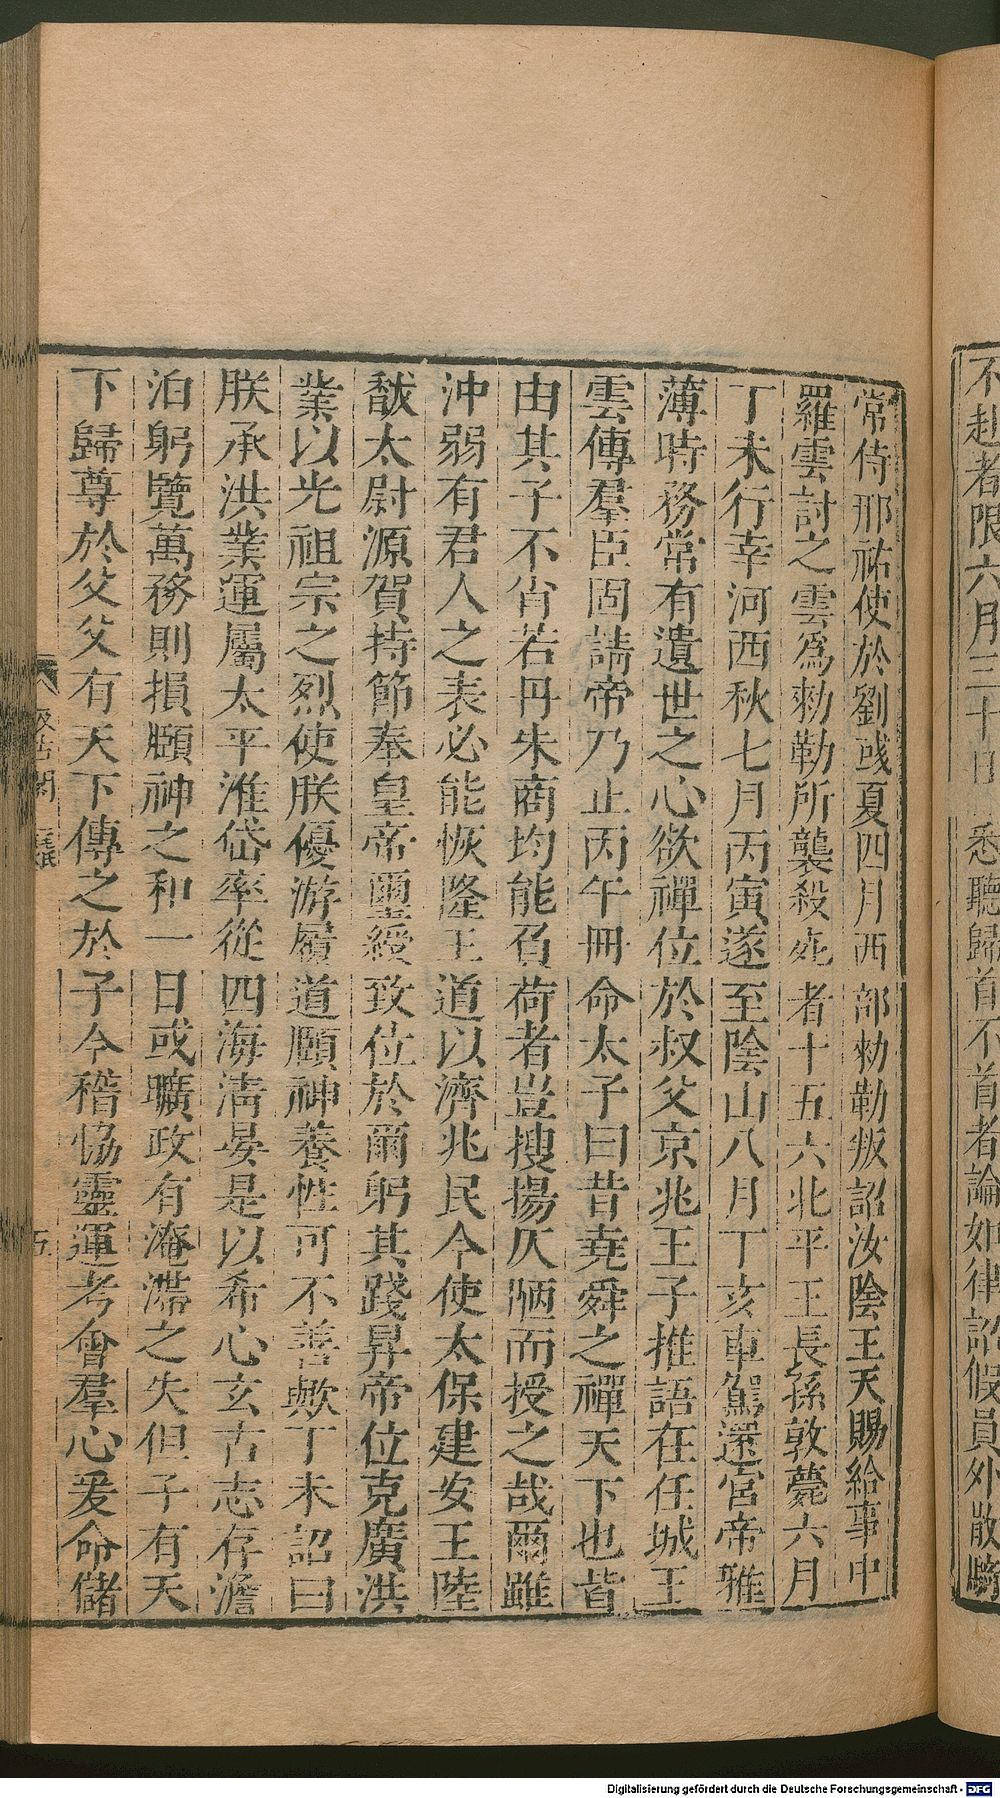 不赴者限六月三十日悉聽歸首不首者論如律詔假員外散騎
常侍邢祐使於劉彧夏四月西部勑勒叛詔汝陰王天賜給事中
羅雲討之雲爲勑勒所襲殺死者十五六北平王長孫敦薨六月
丁未行幸河西秋七月丙寅遂至陰山八月丁亥車駕還宮帝雅
薄時務常有遺世之心欲禪位於叔父京兆王子推語在任城王
雲傳羣臣固請帝乃止丙午冊命太子曰昔堯舜之禪天下也皆
由其子不肖若丹朱商均能負荷者豈搜揚仄陋而授之哉爾雖
沖弱有君人之表必能恢隆王道以濟兆民今使太保建安王陸
馛太尉源賀持節奉皇帝璽綬致位於爾躬其踐昇帝位克廣洪
業以光祖宗之烈使朕優游履道頤神養性可不善歟丁未詔曰
朕承洪業運屬太平淮岱率從四海淸晏是以希心玄古志存澹
泊躬覽萬務則損頤神之和一日或曠政有淹滯之失但子有天
下歸尊於父父有天下傳之於子今稽恊靈運考會羣心爰命儲
五
Digitalisierung gefördert durch die Deutsche Forschungsgemeinschaft - DFG